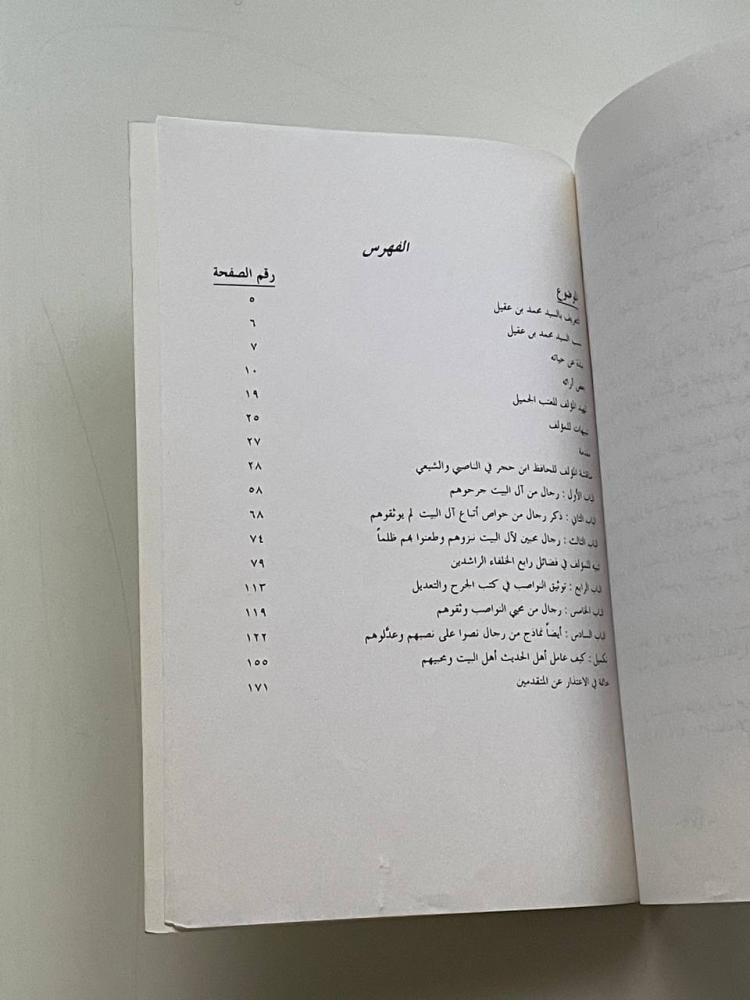 الفهرس
الموضوع رقم الصفحة
التعريف بالسيد محمد بن عقيل ٥
نسب السيد محمد بن عقيل ٦
نبذة عن حياته ٧
بعض آرائه ١٠
تمهيد المؤلف للعتب الجميل ١٩
تنبيهات للمؤلف ٢٥
مقدمة ٢٧
مناقشة المؤلف للحافظ ابن حجر في الناصبي والشيعي ٢٨
الباب الأول : رجال من آل البيت جرحوهم ٥٨
الباب الثاني : ذكر رجال من خواص أتباع آل البيت لم يوثقوهم ٦٨
الباب الثالث : رجال محبين لآل البيت نبزوهم وطعنوا بهم ظلماً ٧٤
تنبيه للمؤلف في فضائل رابع الخلفاء الراشدين ٧٩
الباب الرابع : توثيق النواصب في كتب الجرح والتعديل ١١٣
الباب الخامس : رجال من محبي النواصب وثقوهم ١١٩
الباب السادس : أيضاً نماذج من رجال نصوا على نصبهم وعدَّلوهم ١٢٢
تكميل : كيف عامل أهل الحديث أهل البيت ومحبيهم ١٥٥
خاتمة في الاعتذار عن المتقدمين ١٧١